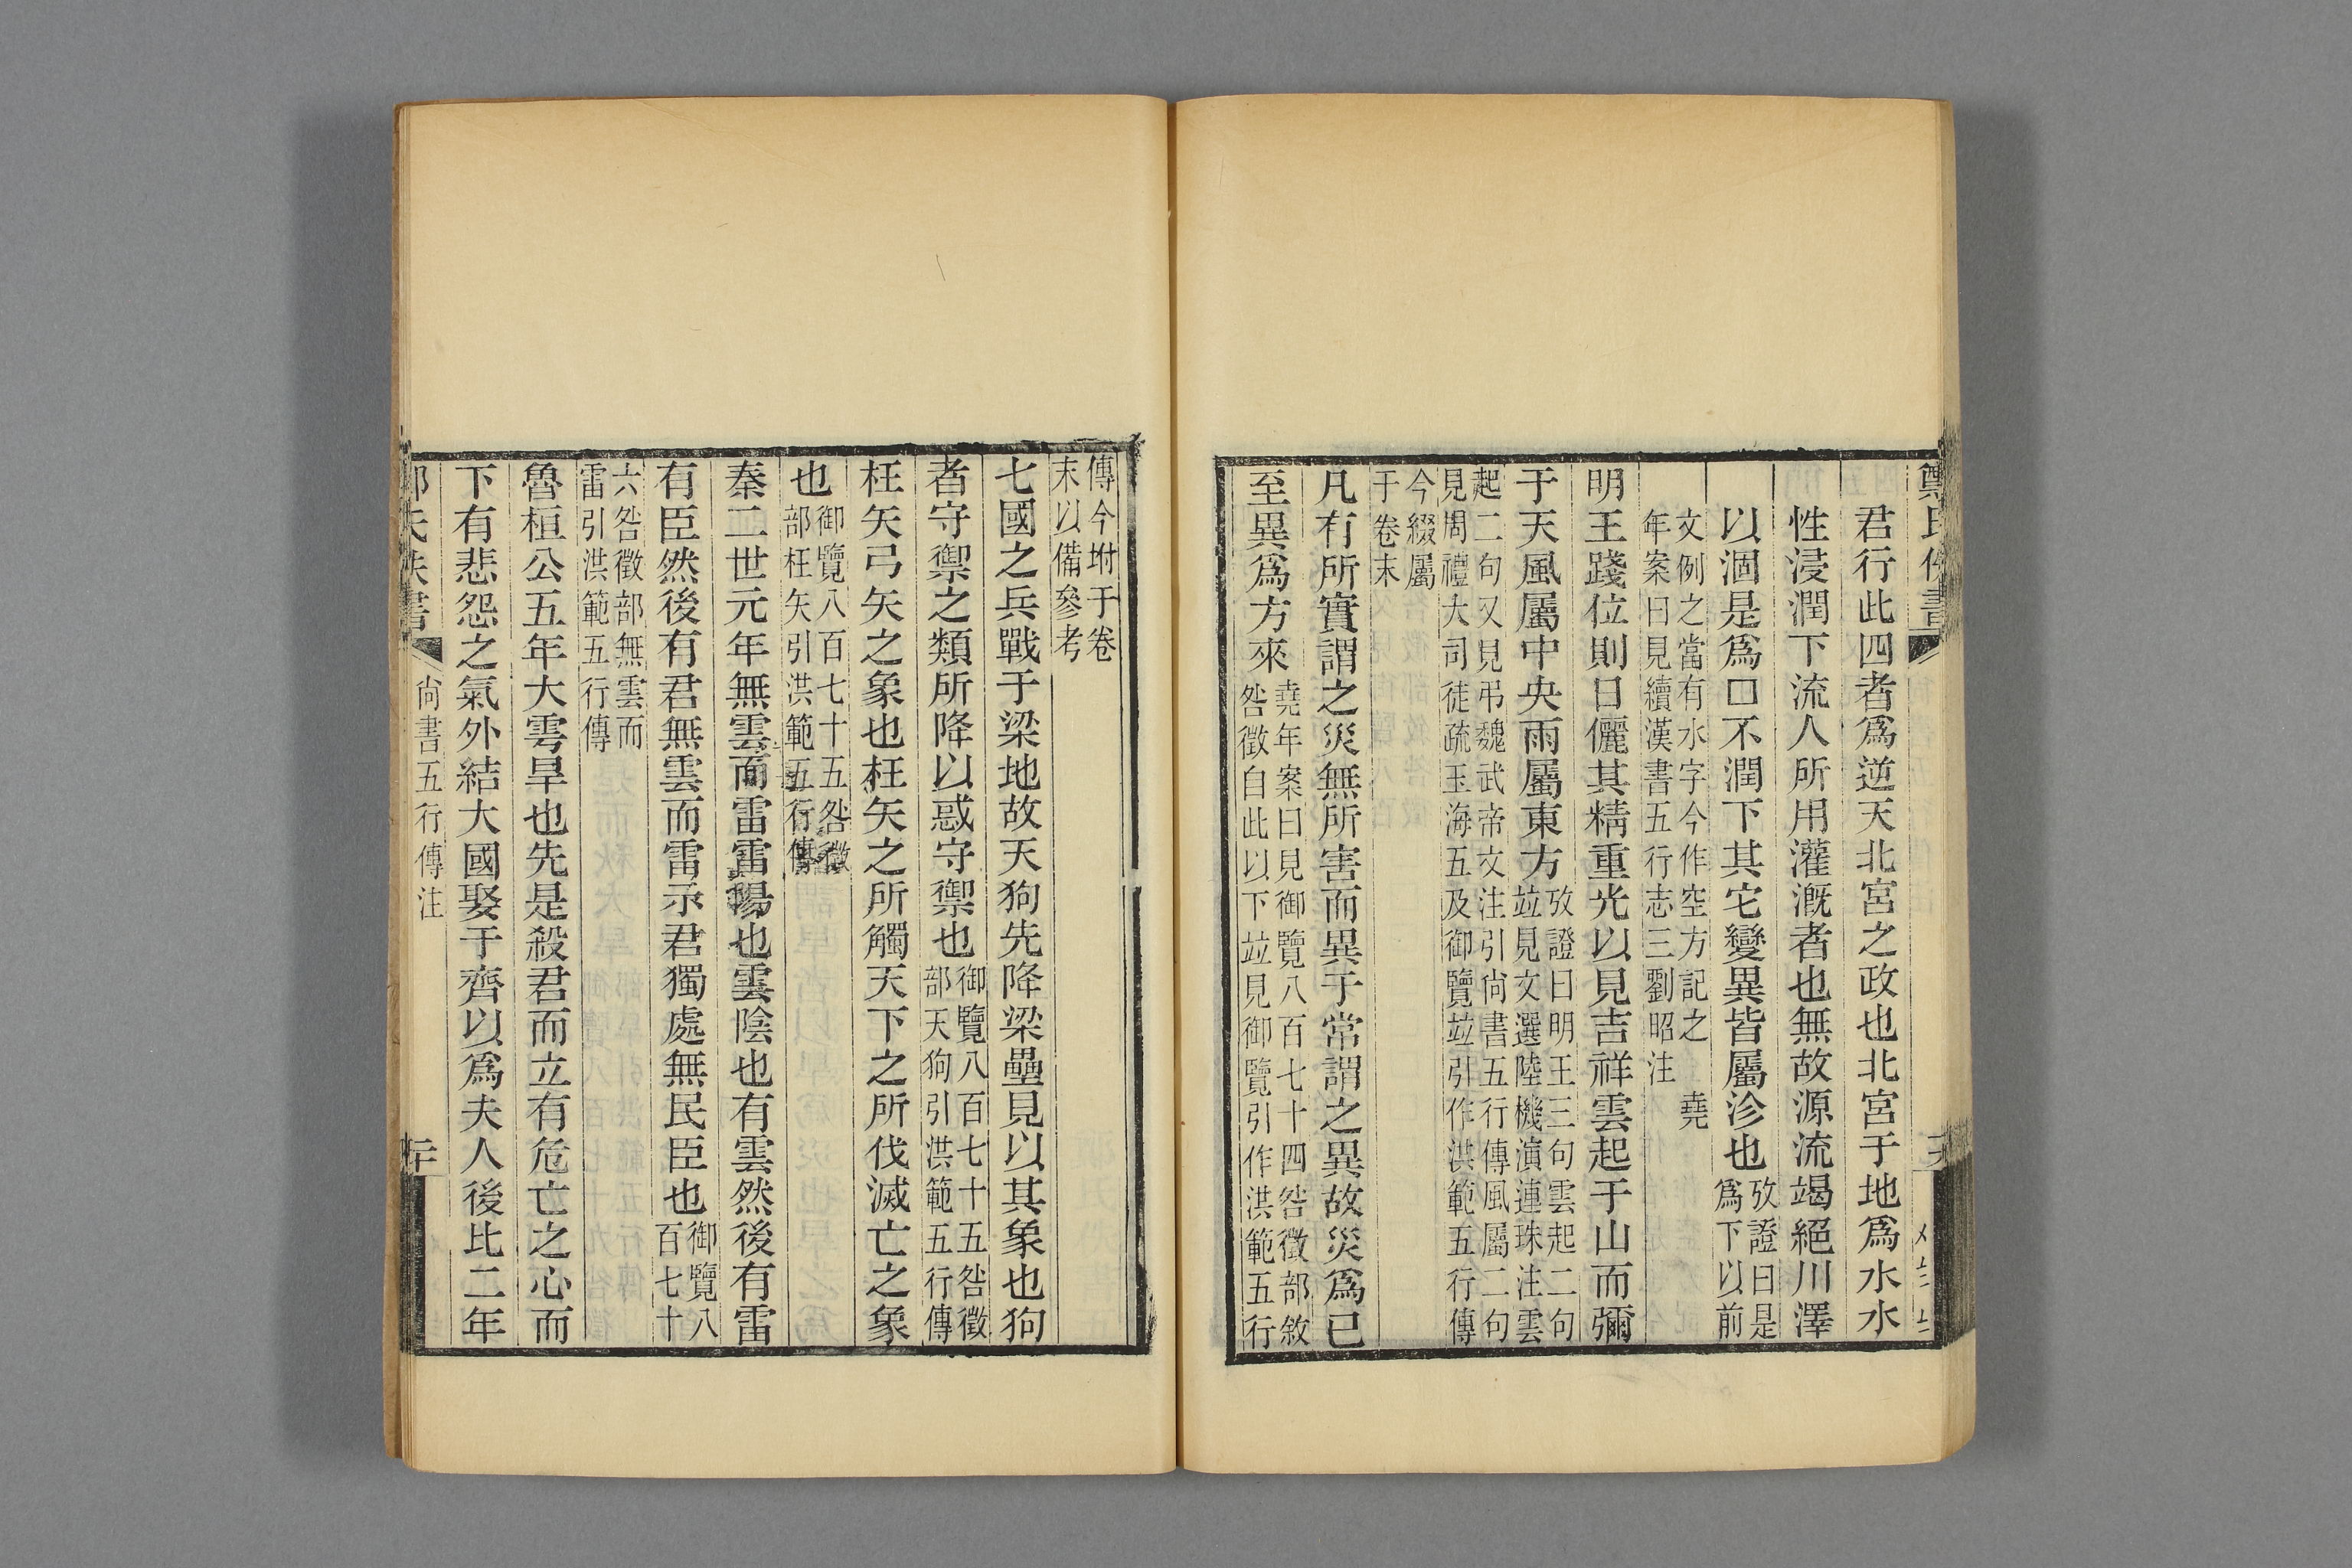 君行此四者爲逆天北宮之政也北宮于地爲水水
性浸潤下流人所用灌漑者也無故源流竭絕川澤
以涸是爲口不潤下其它變異皆屬沴也攷證曰是
爲下以前
文例之當有水字今作空方記之　堯
年案曰見續漢書五行志三劉昭注
明王踐位則日儷其精重光以見吉祥雲起于山而彌
于天風屬中央雨屬東方攷證曰明王三句雲起二句
竝見文選陸機演連珠注雲
起二句又見弔魏武帝文注引尙書五行傳風屬二句
見周禮大司徒疏玉海五及御覽竝引作洪範五行傳
今綴屬
于卷末
凡有所實謂之災無所害而異于常謂之異故災爲已
至異爲方來堯年案曰見御覽八百七十四咎徵部敘
咎徵自此以下竝見御覽引作洪範五行
傳今坿于卷
末以備參考
七國之兵戰于梁地故天狗先降梁壘見以其象也狗
者守禦之類所降以惑守禦也御覽八百七十五咎徵
部天狗引洪範五行傳
枉矢弓矢之象也枉矢之所觸天下之所伐滅亡之象
也御覽八百七十五咎徵
部枉矢引洪範五行傳
秦二世元年無雲而雷雷陽也雲陰也有雲然後有雷
有臣然後有君無雲而雷示君獨處無民臣也御覽八
百七十
六咎徵部無雲而
雷引洪範五行傳
魯桓公五年大雩旱也先是殺君而立有危亡之心而
下有悲怨之氣外結大國娶于齊以爲夫人後比二年
尙書五行傳注